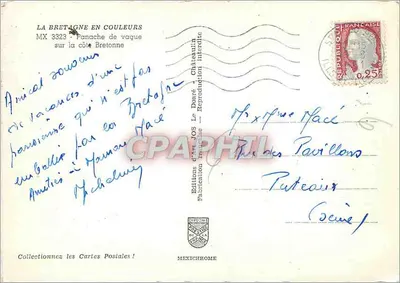 LA BRETAGNE EN COULEURS
MX 3323 - Panache de vague
sur la côte Bretonne
Amical souvenir
de vacances d'une
parisienne qui n'est pas
emballée par la Bretagne
Amitiés à Maman Macé
Editions d'Art JOS Le Doaré - Châteaulin
Fabrication Française - Reproduction interdite
REPUBLIQUE
FRANÇAISE
0,25
Mr x Mme Macé
Rue des Pavillons
Puteaux
(Seine)
CPAPHIL
Collectionnez les Cartes Postales !
MEXICHROME